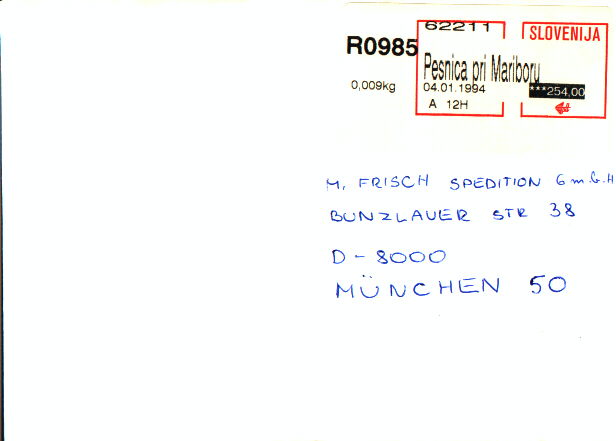 62211
SLOVENIJA
R0985
Pesnica pri Mariboru
0,009kg
04.01.1994
***254,00
A 12H
M. FRISCH SPEDITION G m.b.H
BUNZLAUER STR 38
D - 8000
MÜNCHEN 50